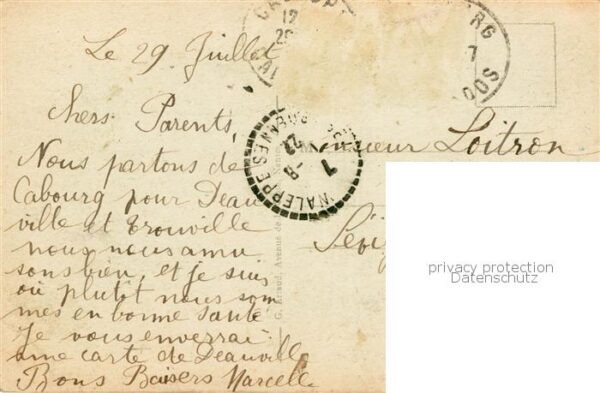 Le 29 Juillet
Chers Parents,
Nous partons de
Cabourg pour Deau
ville et Trouville
nous nous amu
sons bien, et je suis
où plutot nous som
mes en bonne santé
Je vous enverrai
une carte de Deauville
Bons Baisers Marcelle
Monsieur Loitron
privacy protection
Datenschutz